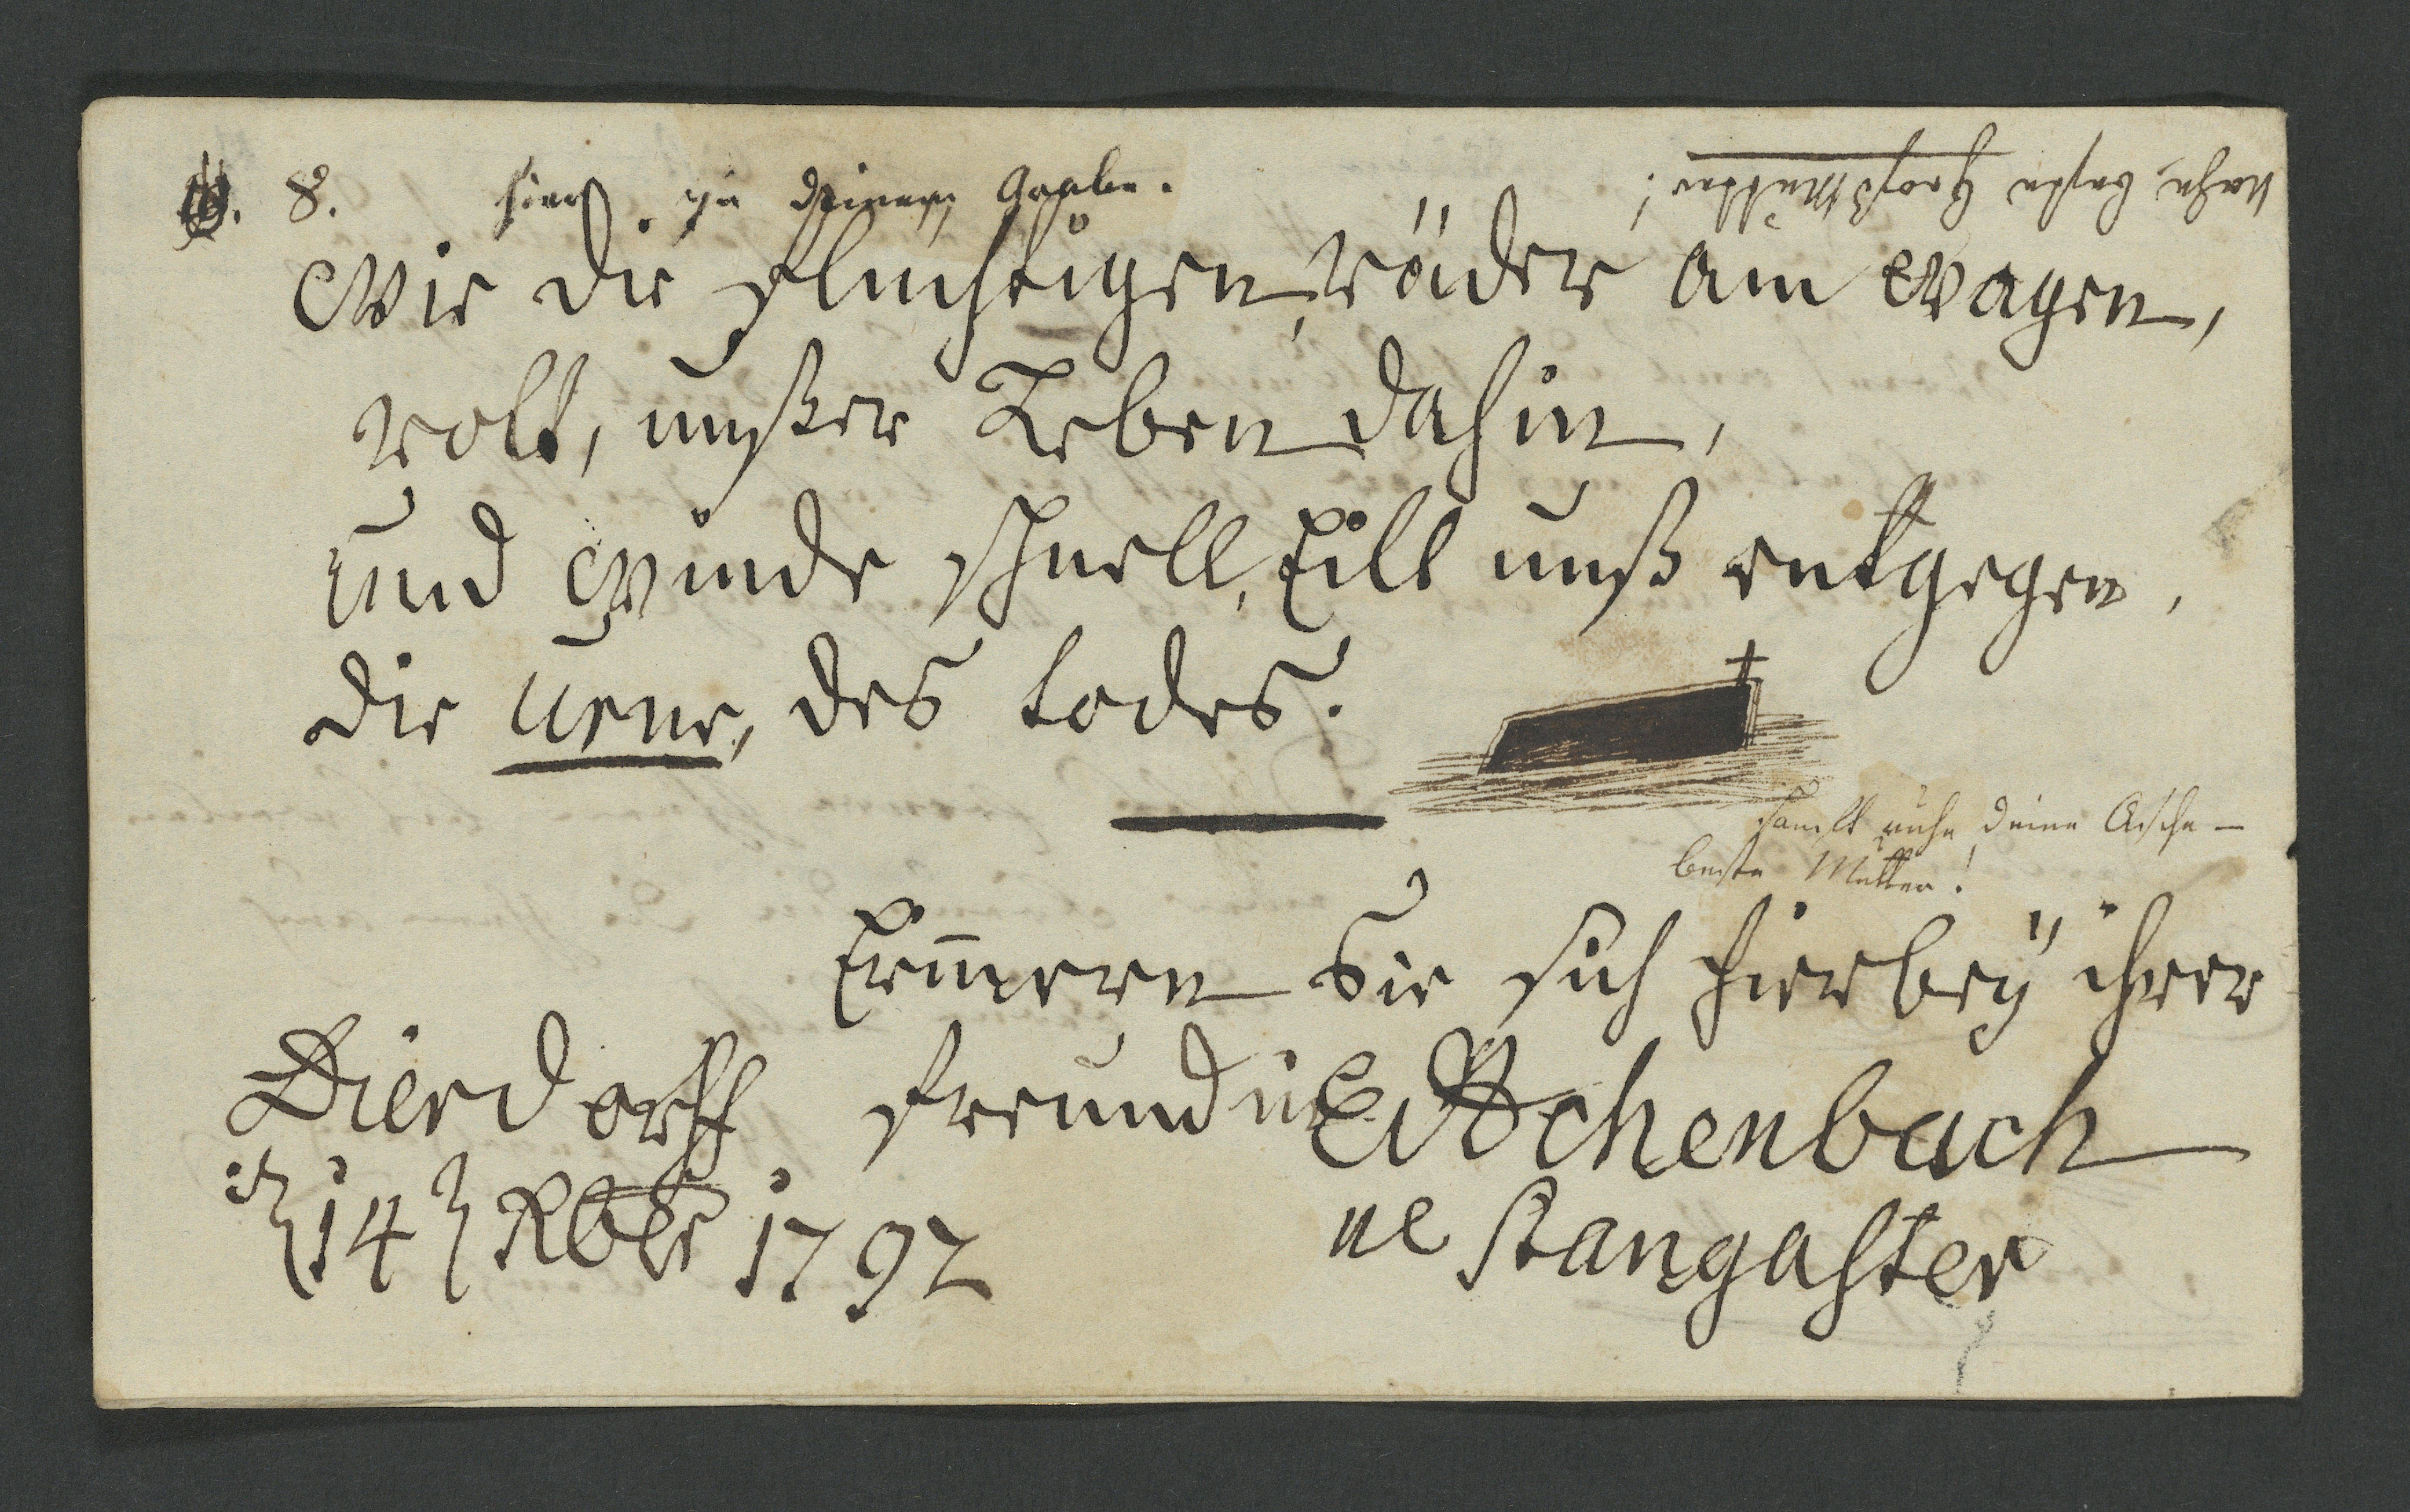 8. hier zu deinem Grabe.
Ruhe beste Großmutter!
Wie die flüchtigen, räder am wagen,
rolt, unßer Leben dahin,
und winde schnell, Eilt unß entgegen,
die Urne, des todes.
Sanfft ruhe deine Asche —
beste Mutter!
Erinnern Sie sich hierbeÿ ihrer
Dierdorff freundin E Achenbach
14 Xber 1792 ne Stangasser